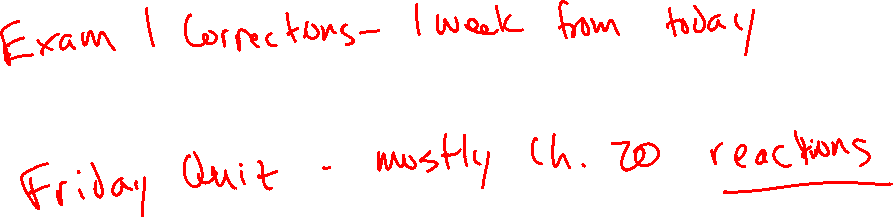 Exam 1 Corrections- 1 week from today
Friday Quiz - mostly Ch. 20 reactions